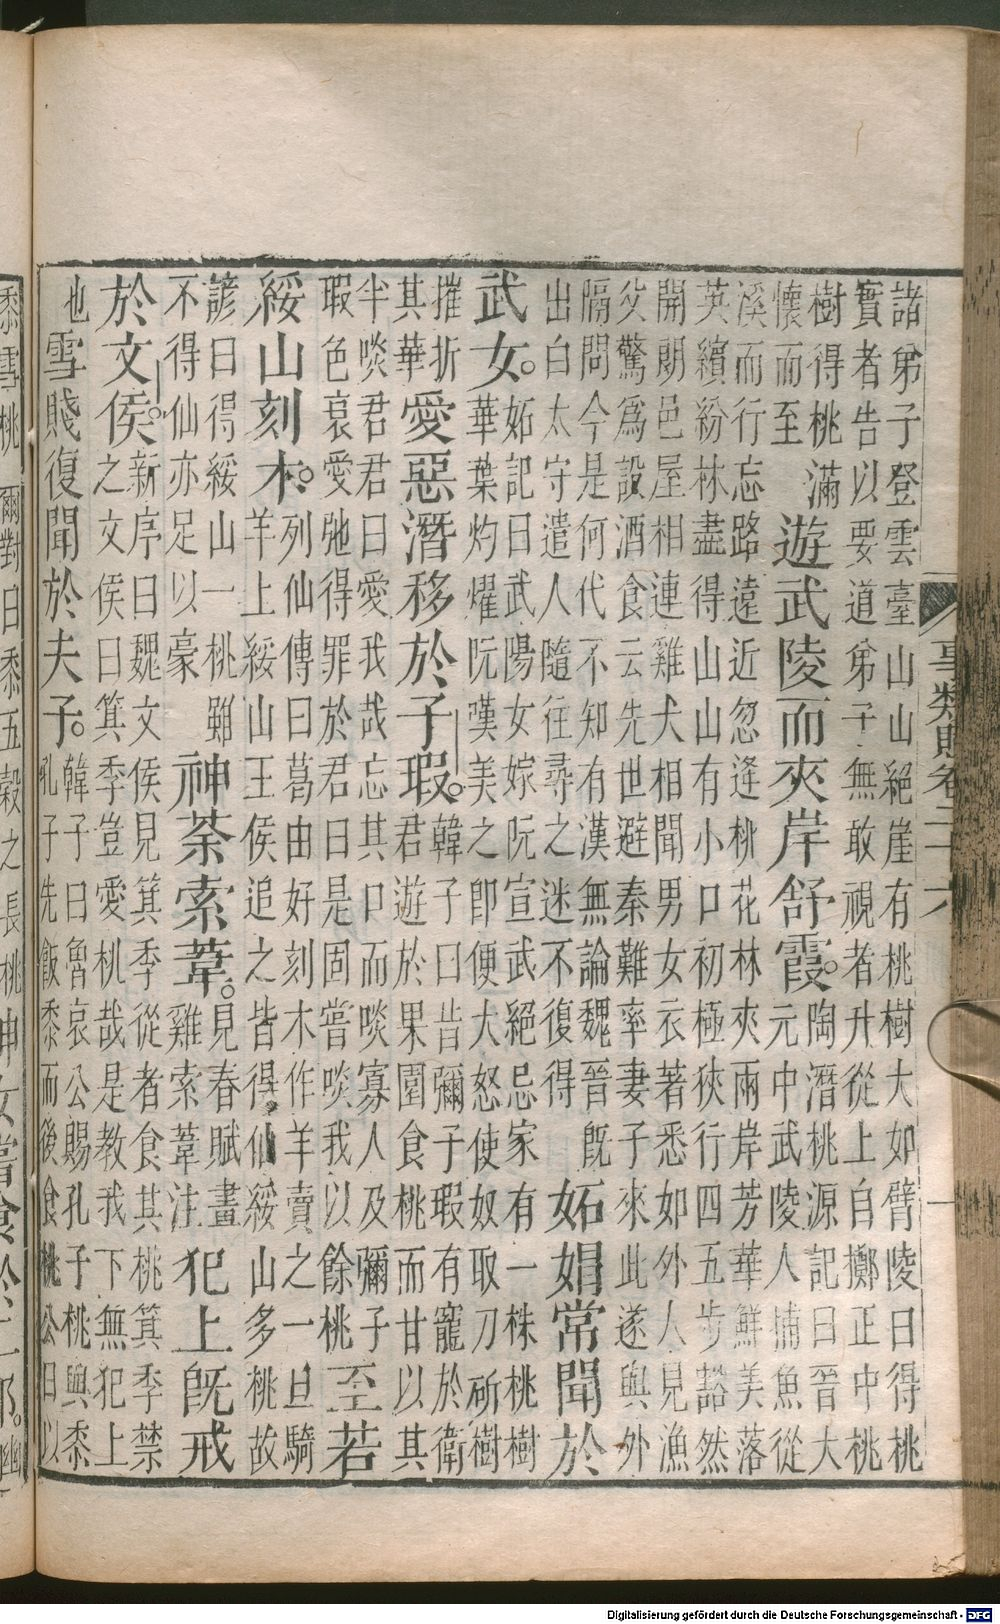 諸弟子登雲臺山山絕崖有桃樹大如臂陵曰得桃
實者告以要道弟子無敢視者升從上自擲正中桃
樹得桃滿
懷而至
遊武陵而夾岸舒霞。
陶潛桃源記曰晉大
元中武陵人捕魚從
溪而行忘路遠近忽逢桃花林夾兩岸芳華鮮美落
英繽紛林盡得山山有小口初極狹行四五步豁然
開朗邑屋相連雞犬相聞男女衣著悉如外人見漁
父驚爲設酒食云先世避秦難率妻子來此遂與外
隔問今是何代不知有漢無論魏晉旣
出白太守遣人隨往尋之迷不復得
妬娼常聞於
武女。
妬記曰武陽女嫁阮宣武絕忌家有一株桃樹
華葉灼燿阮嘆美之卽便大怒使奴取刀斫樹
摧折
其華
愛惡潛移於子瑕。
韓子曰昔彌子瑕有寵於衛
君遊於果園食桃而甘以其
半啖君君曰愛我哉忘其口而啖寡人及彌子
瑕色衰愛弛得罪於君曰是固嘗啖我以餘桃
至若
綏山刻木。
列仙傳曰葛由好刻木作羊賣之一旦騎
羊上綏山王侯追之皆得仙綏山多桃故
諺曰得綏山一桃雖
不得仙亦足以豪
神荼索葦。
見春賦畫
雞索葦注
犯上旣戒
於文侯。
新序曰魏文侯見箕季從者食其桃箕季禁
之文侯曰箕季豈愛桃哉是教我下無犯上
也
雪賤復聞於夫子。
韓子曰魯哀公賜孔子桃與黍
孔子先飯黍而後食桃公曰以
黍雪桃
爾對曰黍五穀之長桃
事類賦卷二十六
一
Digitalisierung gefördert durch die Deutsche Forschungsgemeinschaft - DFG